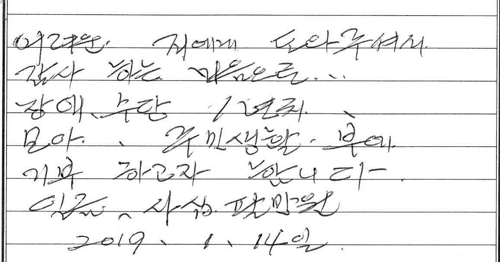 어려운 저에게 도와주셔서
감사 하는 마음으로...
장애 수단 1년치
모아. 주민생활. 부에
기부 하고자 합니다-
일금 사십 팔만원
2019. 1. 14일.